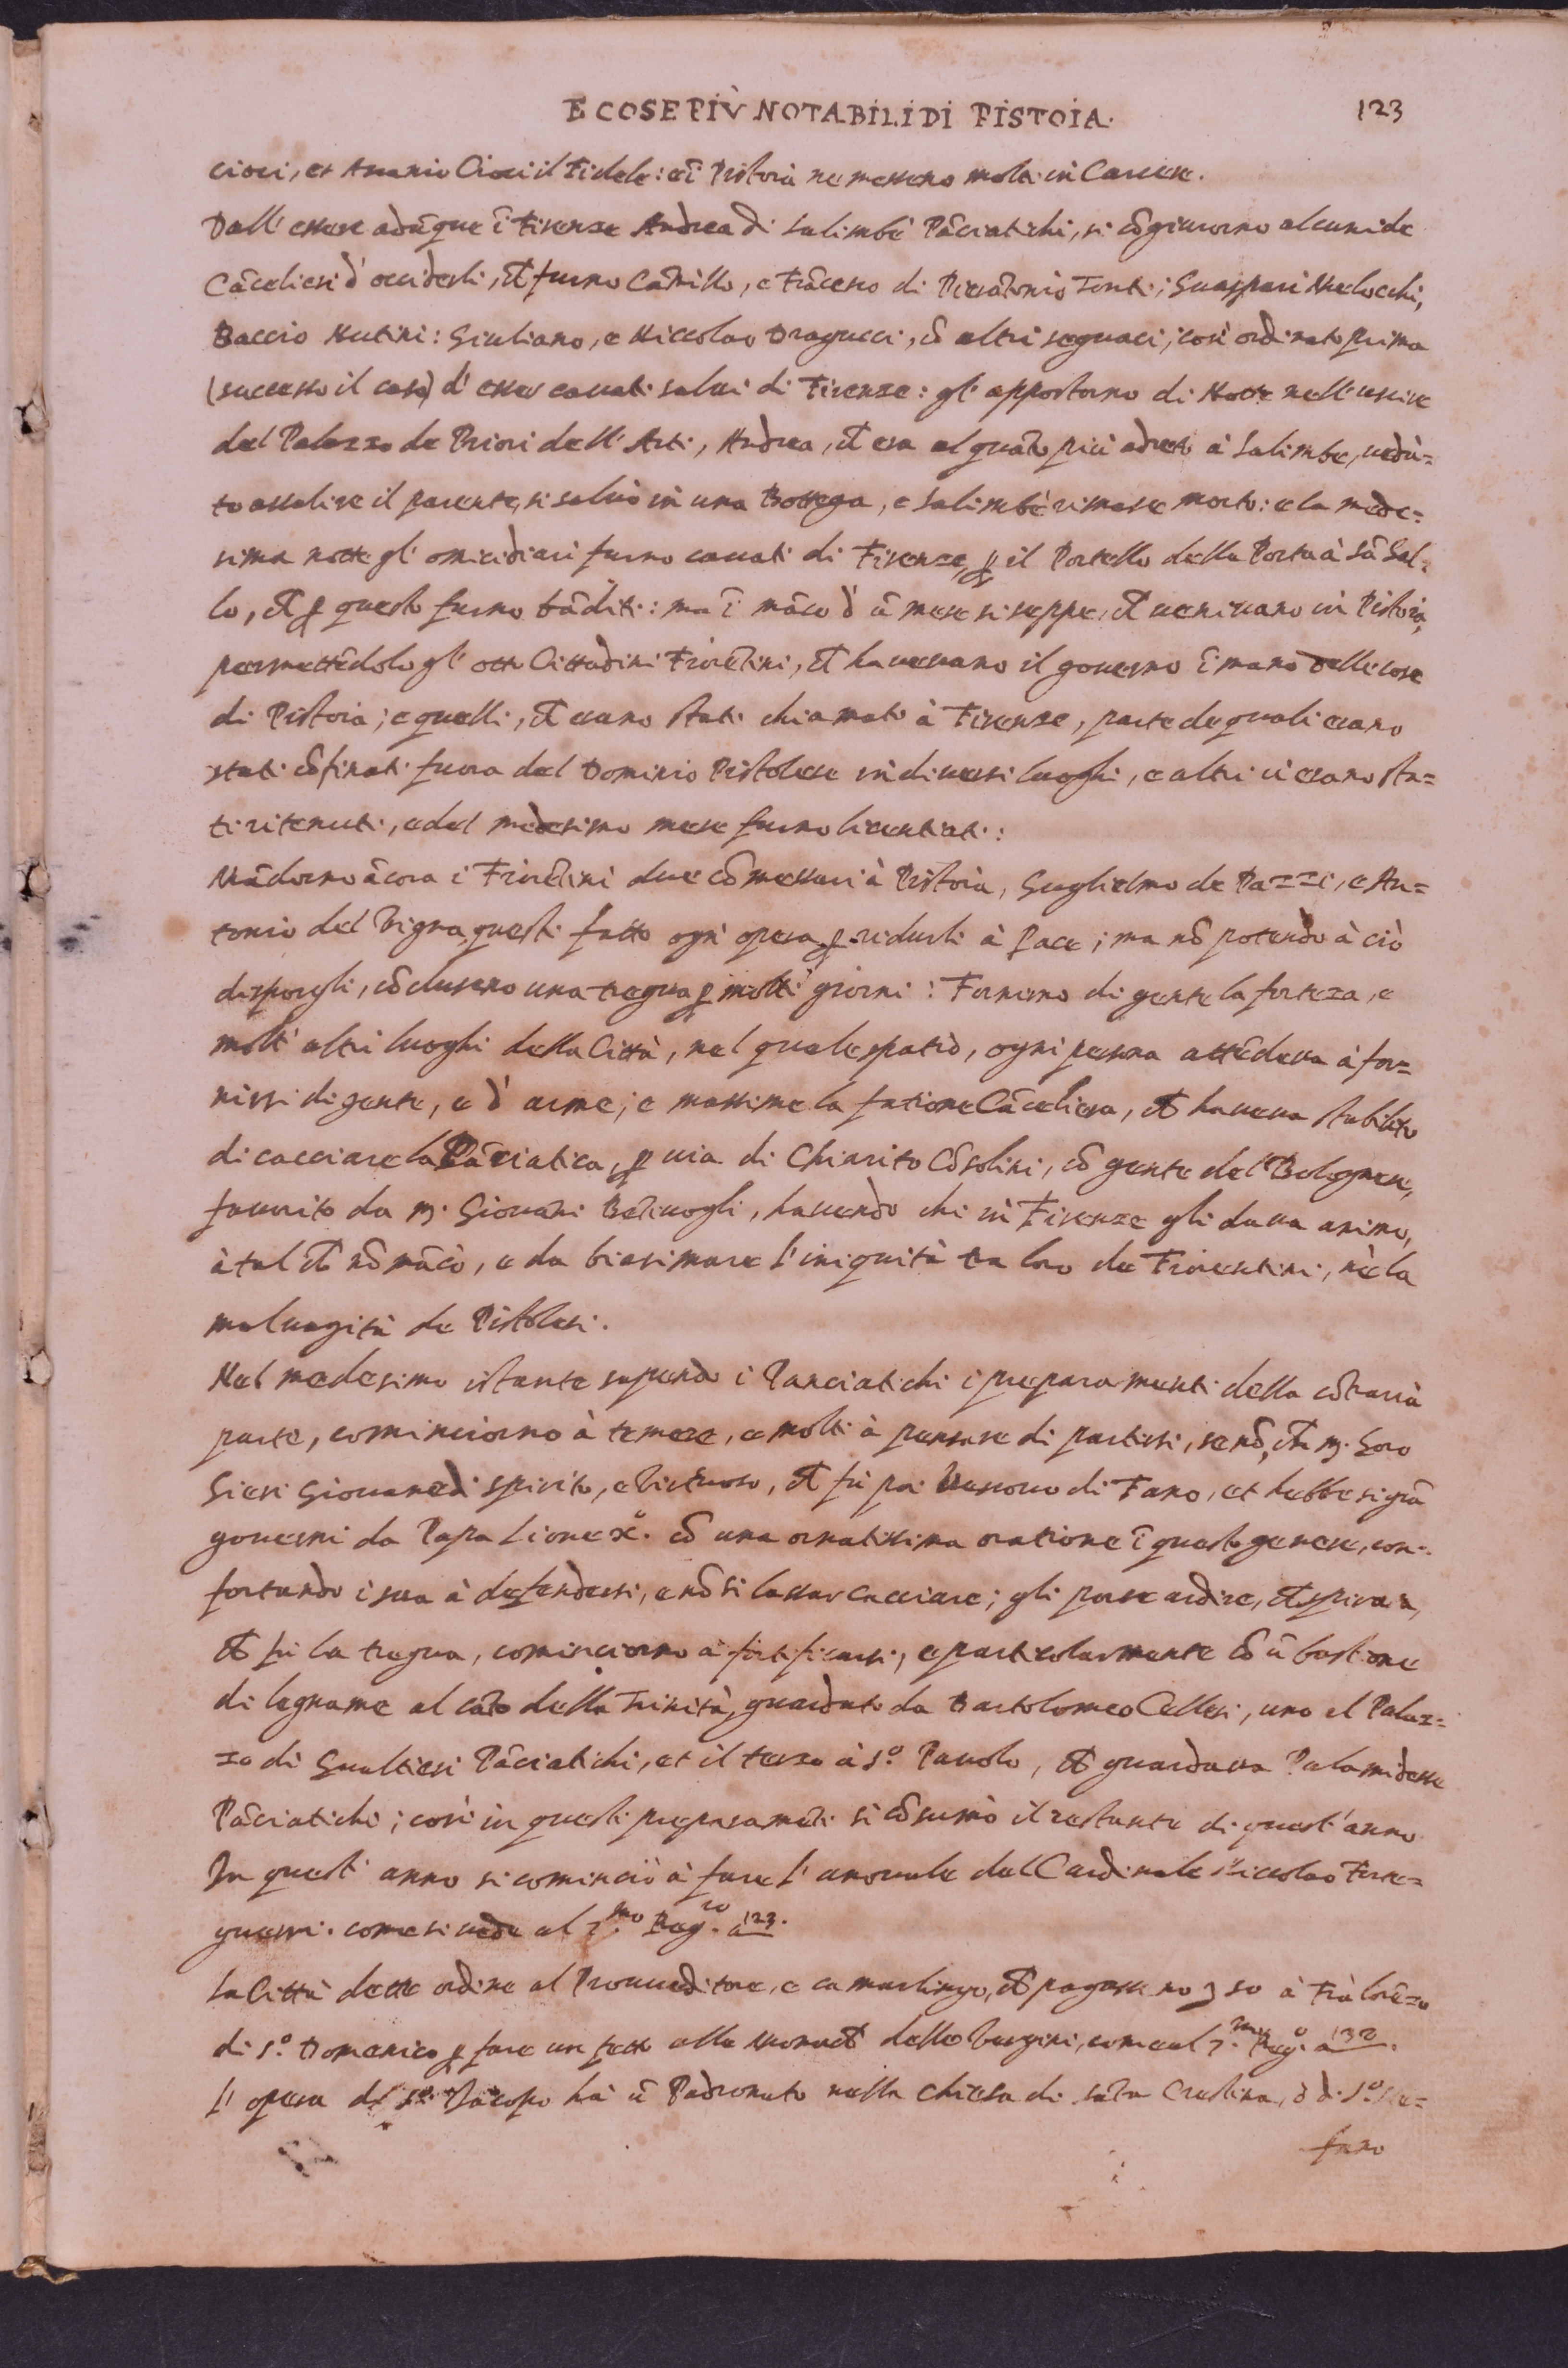 E COSE PIÙ NOTABILI DI PISTOIA. 123
cioci, et Ascanio Cioci il Fidele: e ĩ Pistoia ne messeno molti in Carcere.
Dall' essere adũque ĩ Firenze Andrea di Salimbẽ Pãciatichi, si cõgiurorno alcuni de
Cãcelieri d' occiderli, et furno Camillo, e Frãcesco di Pierãtonio Tonti; Guaspari Melocchi,
Baccio Nutini: Giuliano, e Niccolao Dragucci, cõ altri seguaci; così ordinato prima
(successo il caso) d' esser cavati salvi di Firenze: gl' appostorno di Notte nell' uscire
del Palazzo de Priori dell' Arti, Andrea, ch̃ era alquãto più adreto à Salimbe, vedu=
to assalire il parente, si salvò in una Bottega, e Salimbẽ rimase morto: e la mede=
sima notte gl' omicidiari furno cavati di Firenze, ꝑ il Portello della Porta à Sã Gal=
lo, ch̃ ꝑ questo furno bãditi: ma ĩ mãco d' ũ mese si seppe, ch̃ venivano in Pistoia,
permettẽdolo gl' otto Cittadini Fiorẽtini, ch̃ havevano il governo ĩ mano delle cose
di Pistoia; e quelli, ch̃ erano stati chiamati à Firenze, parte de quali erano
stati cõfinati fuora del Dominio Pistolese in diversi luoghi, e altri vi erano sta=
ti ritenuti, e del medesimo mese furno licentiati:
Mãdorno ãcora i Fiorẽtini due cõmessari à Pistoia, Guglielmo de Pazzi, e An=
tonio del Vigna, questi fatto ogni opera ꝑ ridurli à Pace; ma nõ potendo à ciò
disporgli, cõclusero una tregua ꝑ molti giorni: Fornirno di gente la forteza, e
molti altri luoghi della Città, nel quale spatio, ogni persona attẽdeva à for=
nirsi di gente, e d' arme; e massime la fatione Cãceliera, ch̃ haveva stabilito
di cacciare la Pãciatica, ꝑ via di Chiarito Cõsolini, cõ gente del Bolognese,
favorito da m. Giovãni Bẽtivogli, havendo chi in Firenze gli dava animo,
à tal ch̃ nõ mãcò, e da biasimare l' iniquità tra loro de Fiorentini, nè la
malvagità de Pistolesi.
Nel medesimo istante sapendo i Panciatichi i preparamenti della cõtraria
parte, cominciorno à temere, e molti à pensare di partirsi, se nõ, ch̃ m. Goro
Gieri Giovane di spirito, e Virtuoso, ch̃ fù poi Vescovo di Fano, et hebbe sì grã
governi da Papa Lione Xº. cõ una ornatissima oratione ĩ questo genere, con=
fortando i sua à defendersi, e nõ si lassar cacciare; gli porse ardire,
ch̃ fù la tregua, cominciorno à fortificarsi, e particolarmente cõ ũ bastione
di legname al cãto della Trinità, guardato da Bartolomeo Cellesi, uno al Palaz=
zo di Gualtieri Pãciatichi, et il terzo à Sº. Pavolo, ch̃ guardava Palamidesse
Pãciatichi; così in questi preparamẽti si cõsumò il restante di quest' anno.
In quest' anno si cominciò à fare l' annovale del Cardinale Niccolao Forte=
guerri. come si vede al 7.mo Reg.ro à 123.
La Città dette ordine al Proveditore, e camarlingo, ch̃ pagasseno à Frà Lorẽzo
di Sº. Domenico ꝑ fare un tetto alle Monach̃ delle Vergini, come al 7.mo Reg.º à 132.
L' opera di Sº. Jacopo hà ũ Padronato nella Chiesa di Sãta Cristina, ò di Sº. Ste=
fano